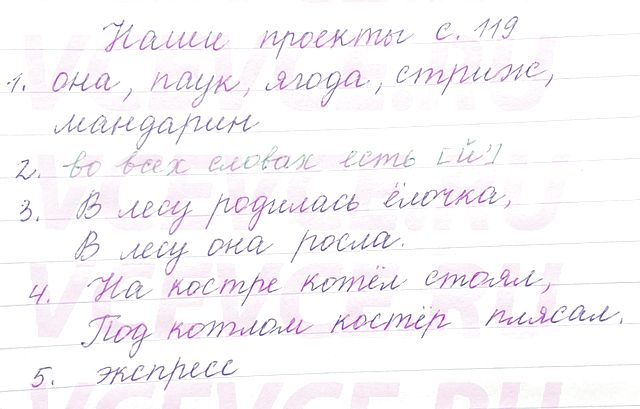 Наши проекты с. 119
1. она, паук, ягода, стриж,
мандарин
2. во всех словах есть [й']
3. В лесу родилась ёлочка,
В лесу она росла.
4. На костре котёл стоял,
Под котлом костёр плясал.
5. экспресс